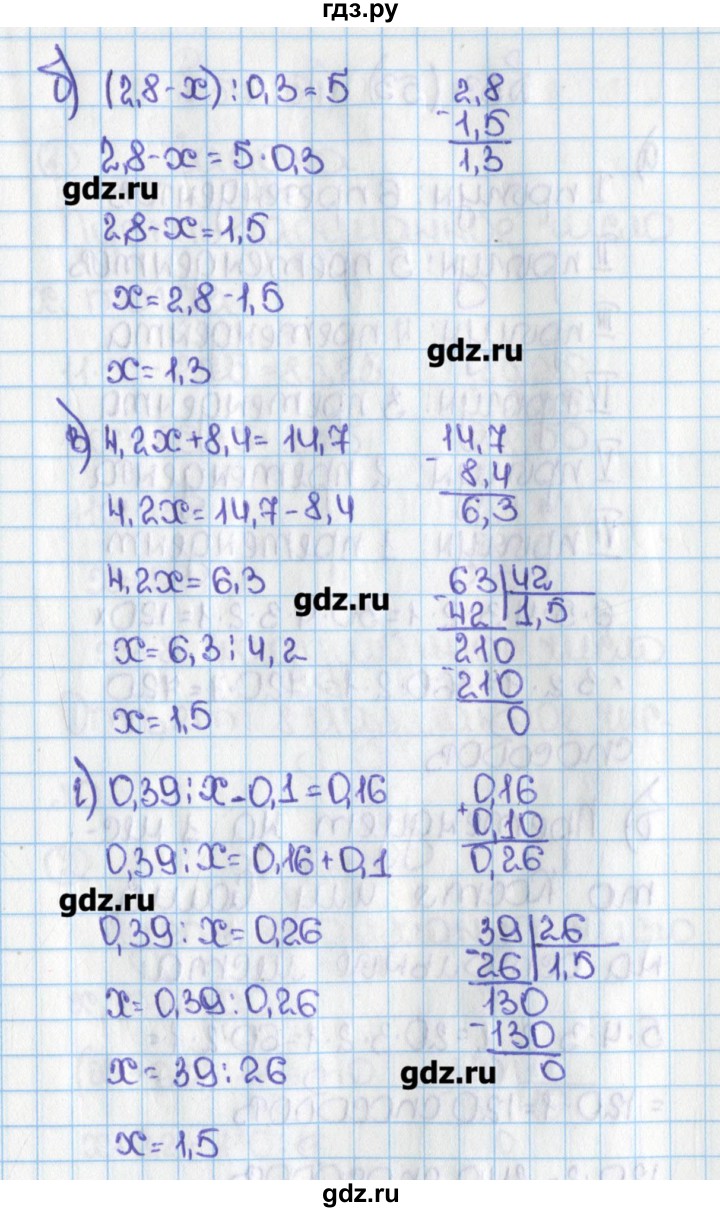 гдз.ру
б) (2,8-x):0,3=5
2,8
-1,5
1,3
2,8-x=5·0,3
gdz.ru
2,8-x=1,5
x=2,8-1,5
gdz.ru
x=1,3
в) 4,2x+8,4=14,7
14,7
-8,4
6,3
4,2x=14,7-8,4
4,2x=6,3
gdz.ru
63 42
-42 1,5
210
-210
0
x=6,3:4,2
x=1,5
г) 0,39:x-0,1=0,16
0,16
+0,10
0,26
0,39:x=0,16+0,1
gdz.ru
0,39:x=0,26
39 26
-26 1,5
130
-130
0
x=0,39:0,26
x=39:26
gdz.ru
x=1,5
gdz.ru